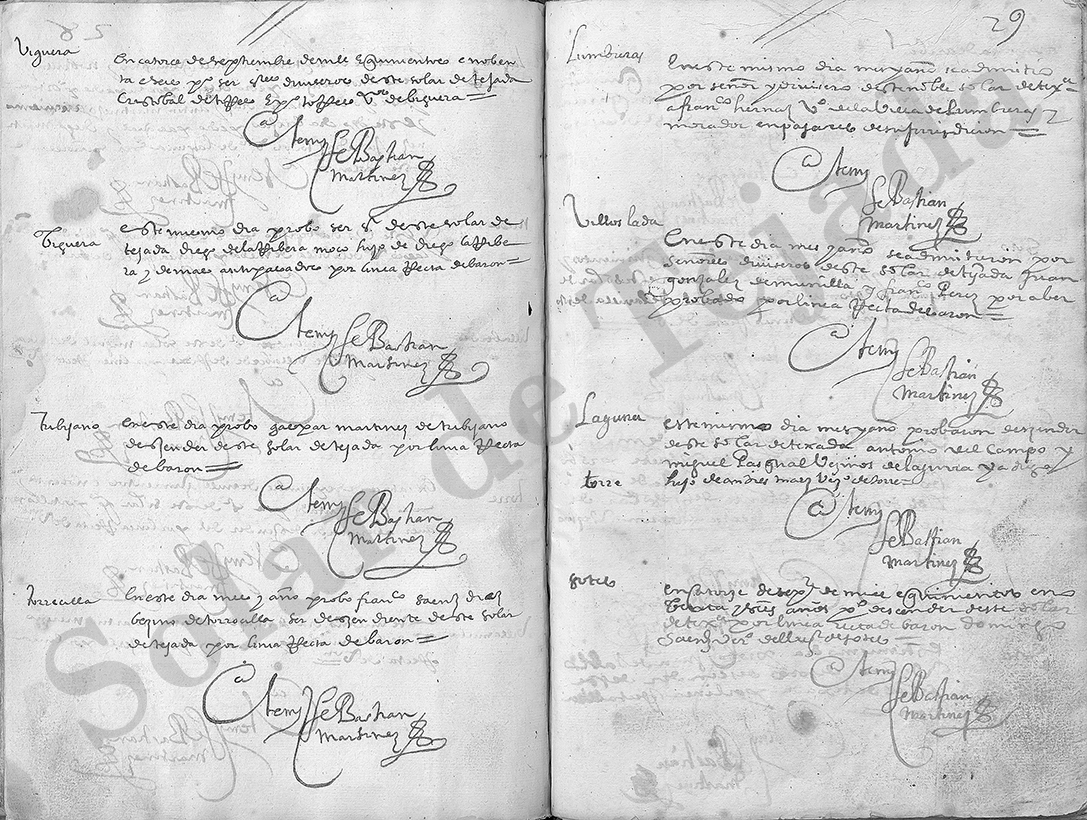 Viguera
En catorce de septiembre de mill e quinientos e noben
ta e seis probo ser señores diviseros deste solar de tejada
Cristobal de
V.os de biguera
Ante my
Sebastian
Martinez
Viguera
este mismo dia probo ser s.r deste solar de
tejada diego de la Ribera moço hijo de diego la Ribe
ra y demas antepasados por linia Recta de baron
Ante my
Sebastian
Martinez
Tubijano
En este dia probo gaspar martinez de tubijano
desender deste solar de tejada por linia Recta
de baron
Ante my
Sebastian
Martinez
torrecilla
En este dia mes y año probo fran.co saenz diez
bezino de torrecilla ser desendiente deste solar
de tejada por linia Recta de baron
Ante my
Sebastian
Martinez
29
Lumbreras
En este mismo dia mes y año se admitio
por señor y divisero deste noble solar de tex.a
fran.co hernaz V.o de la Villa de Lumbreras y
morador en pajares de su jurisdicion
Ante my
Sebastian
Martinez
Villoslada
En este dia mes y año se admitieron por
señores diviseros deste solar de tejada Juan
gonzalez de munilla y fran.co Perez por aber
probado por linea Recta de baron
Ante my
Sebastian
Martinez
Laguna
este mismo dia mes y año probaron desender
deste solar de texada antonio del Campo y
miguel Pasqual Vezinos de laguna y a diego
torre
hijo de andres marz Vz.o de torre
Ante my
Sebastian
Martinez
sotes
en catorze de sep.e de mill e quinientos e no
benta y seis años p.o descender deste solar
de tex.a por linea recta de baron domingo
Saenz
Ante my
Sebastian
Martinez
Solar de Tejada